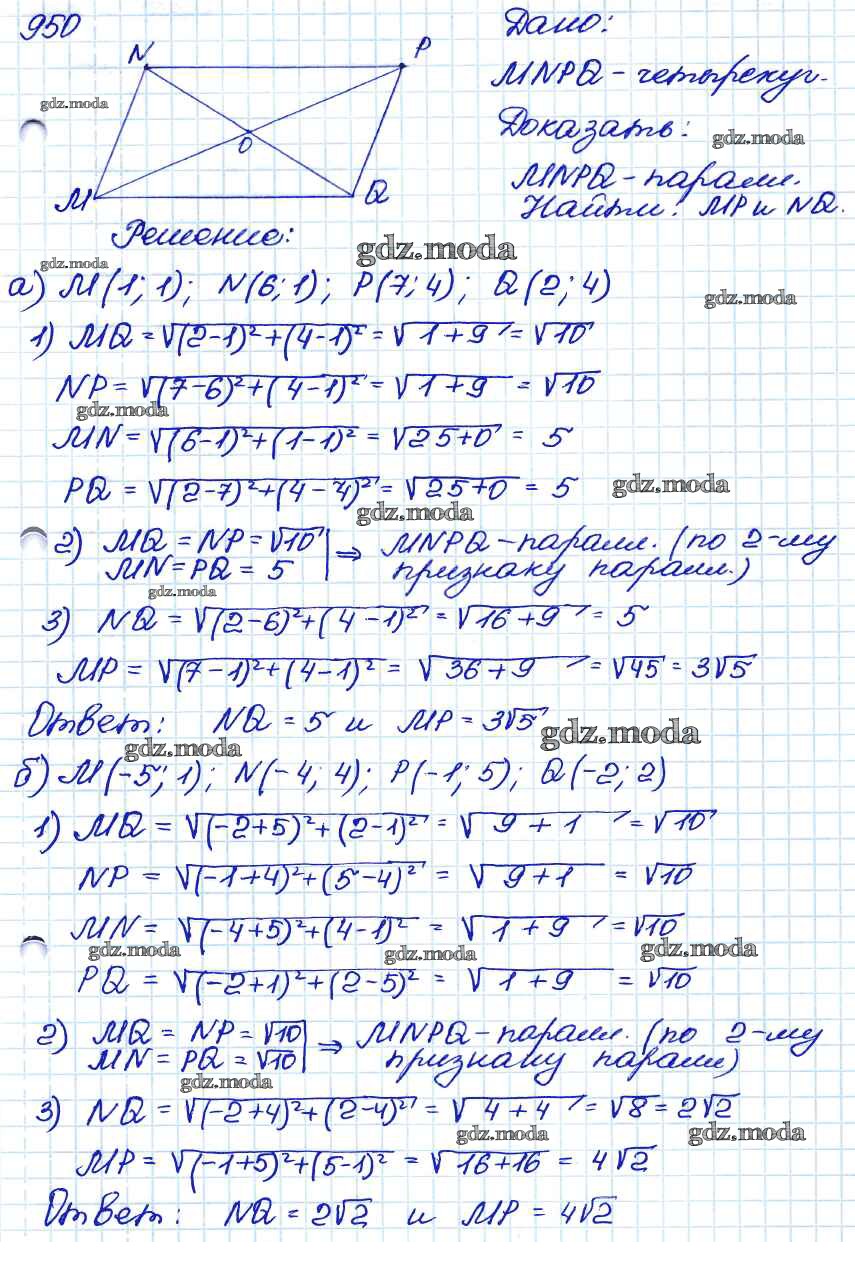 950
N P
O
M Q
Дано:
MNPQ - четырехуг.
Доказать:
MNPQ - паралл.
Найти: MP и NQ.
gdz.moda
gdz.moda
Решение:
gdz.moda
gdz.moda
а) M(1; 1); N(6; 1); P(7; 4); Q(2; 4)
gdz.moda
1) MQ = √(2-1)²+(4-1)² = √1+9 = √10
NP = √(7-6)²+(4-1)² = √1+9 = √10
gdz.moda
MN = √(6-1)²+(1-1)² = √25+0 = 5
PQ = √(2-7)²+(4-4)² = √25+0 = 5
gdz.moda
gdz.moda
2) MQ = NP = √10 | ⇒ MNPQ - паралл. (по 2-му
MN = PQ = 5 | признаку паралл.)
gdz.moda
3) NQ = √(2-6)²+(4-1)² = √16+9 = 5
MP = √(7-1)²+(4-1)² = √36+9 = √45 = 3√5
Ответ: NQ = 5 и MP = 3√5
gdz.moda
gdz.moda
б) M(-5; 1); N(-4; 4); P(-1; 5); Q(-2; 2)
1) MQ = √(-2+5)²+(2-1)² = √9+1 = √10
NP = √(-1+4)²+(5-4)² = √9+1 = √10
MN = √(-4+5)²+(4-1)² = √1+9 = √10
gdz.moda
gdz.moda
gdz.moda
PQ = √(-2+1)²+(2-5)² = √1+9 = √10
2) MQ = NP = √10 | ⇒ MNPQ - паралл. (по 2-му
MN = PQ = √10 | признаку паралл)
gdz.moda
3) NQ = √(-2+4)²+(2-4)² = √4+4 = √8 = 2√2
gdz.moda
gdz.moda
MP = √(-1+5)²+(5-1)² = √16+16 = 4√2
Ответ: NQ = 2√2 и MP = 4√2